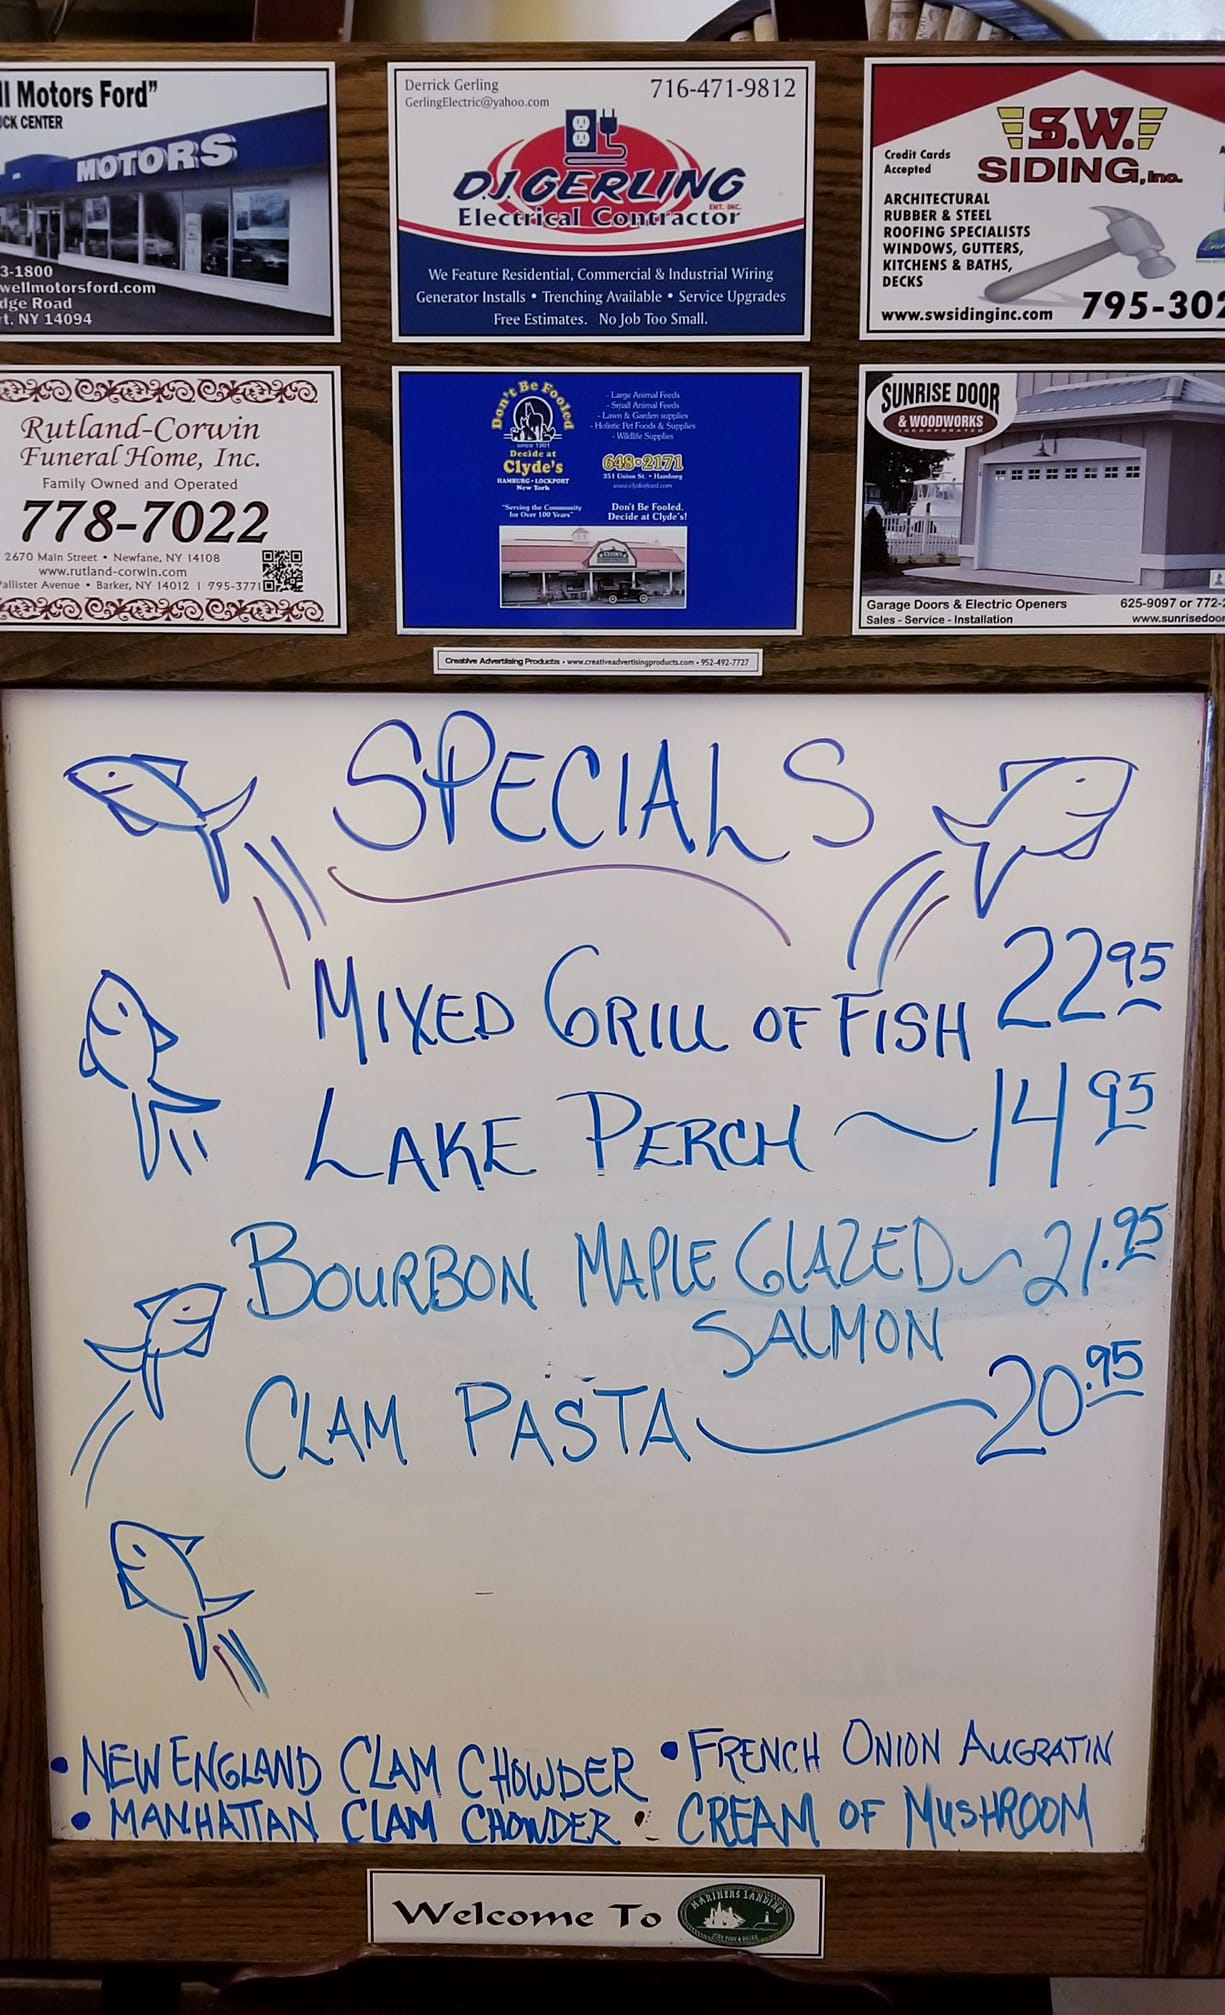 ll Motors Ford"
CK CENTER
MOTORS
3-1800
wellmotorsford.com
dge Road
t, NY 14094
Derrick Gerling
GerlingElectric@yahoo.com
716-471-9812
D.J. GERLING
ENT. INC.
Electrical Contractor
We Feature Residential, Commercial & Industrial Wiring
Generator Installs • Trenching Available • Service Upgrades
Free Estimates. No Job Too Small.
Credit Cards
Accepted
S.W.
SIDING, Inc.
ARCHITECTURAL
RUBBER & STEEL
ROOFING SPECIALISTS
WINDOWS, GUTTERS,
KITCHENS & BATHS,
DECKS
www.swsidinginc.com
795-302
Rutland-Corwin
Funeral Home, Inc.
Family Owned and Operated
778-7022
2670 Main Street • Newfane, NY 14108
www.rutland-corwin.com
allister Avenue • Barker, NY 14012 | 995-3771
Don't Be Fooled
since 1901
Decide at
Clyde's
HAMBURG • LOCKPORT
New York
"Serving the Community
for Over 100 Years"
- Large Animal Feeds
- Small Animal Feeds
- Lawn & Garden supplies
- Holistic Pet Foods & Supplies
- Wildlife Supplies
648•2171
351 Union St. • Hamburg
www.clydesfeed.com
Don't Be Fooled.
Decide at Clyde's!
SUNRISE DOOR
& WOODWORKS
INCORPORATED
Garage Doors & Electric Openers
Sales - Service - Installation
625-9097 or 772-2
www.sunrisedoor
Creative Advertising Products • www.creativeadvertisingproducts.com • 952-492-7727
SPECIALS
MIXED GRILL OF FISH 22 95
LAKE PERCH ~ 14 95
BOURBON MAPLE GLAZED ~ 21.95
SALMON
CLAM PASTA 20.95
• NEW ENGLAND CLAM CHOWDER
• MANHATTAN CLAM CHOWDER
• FRENCH ONION AUGRATIN
• CREAM OF MUSHROOM
Welcome To
MARINERS LANDING